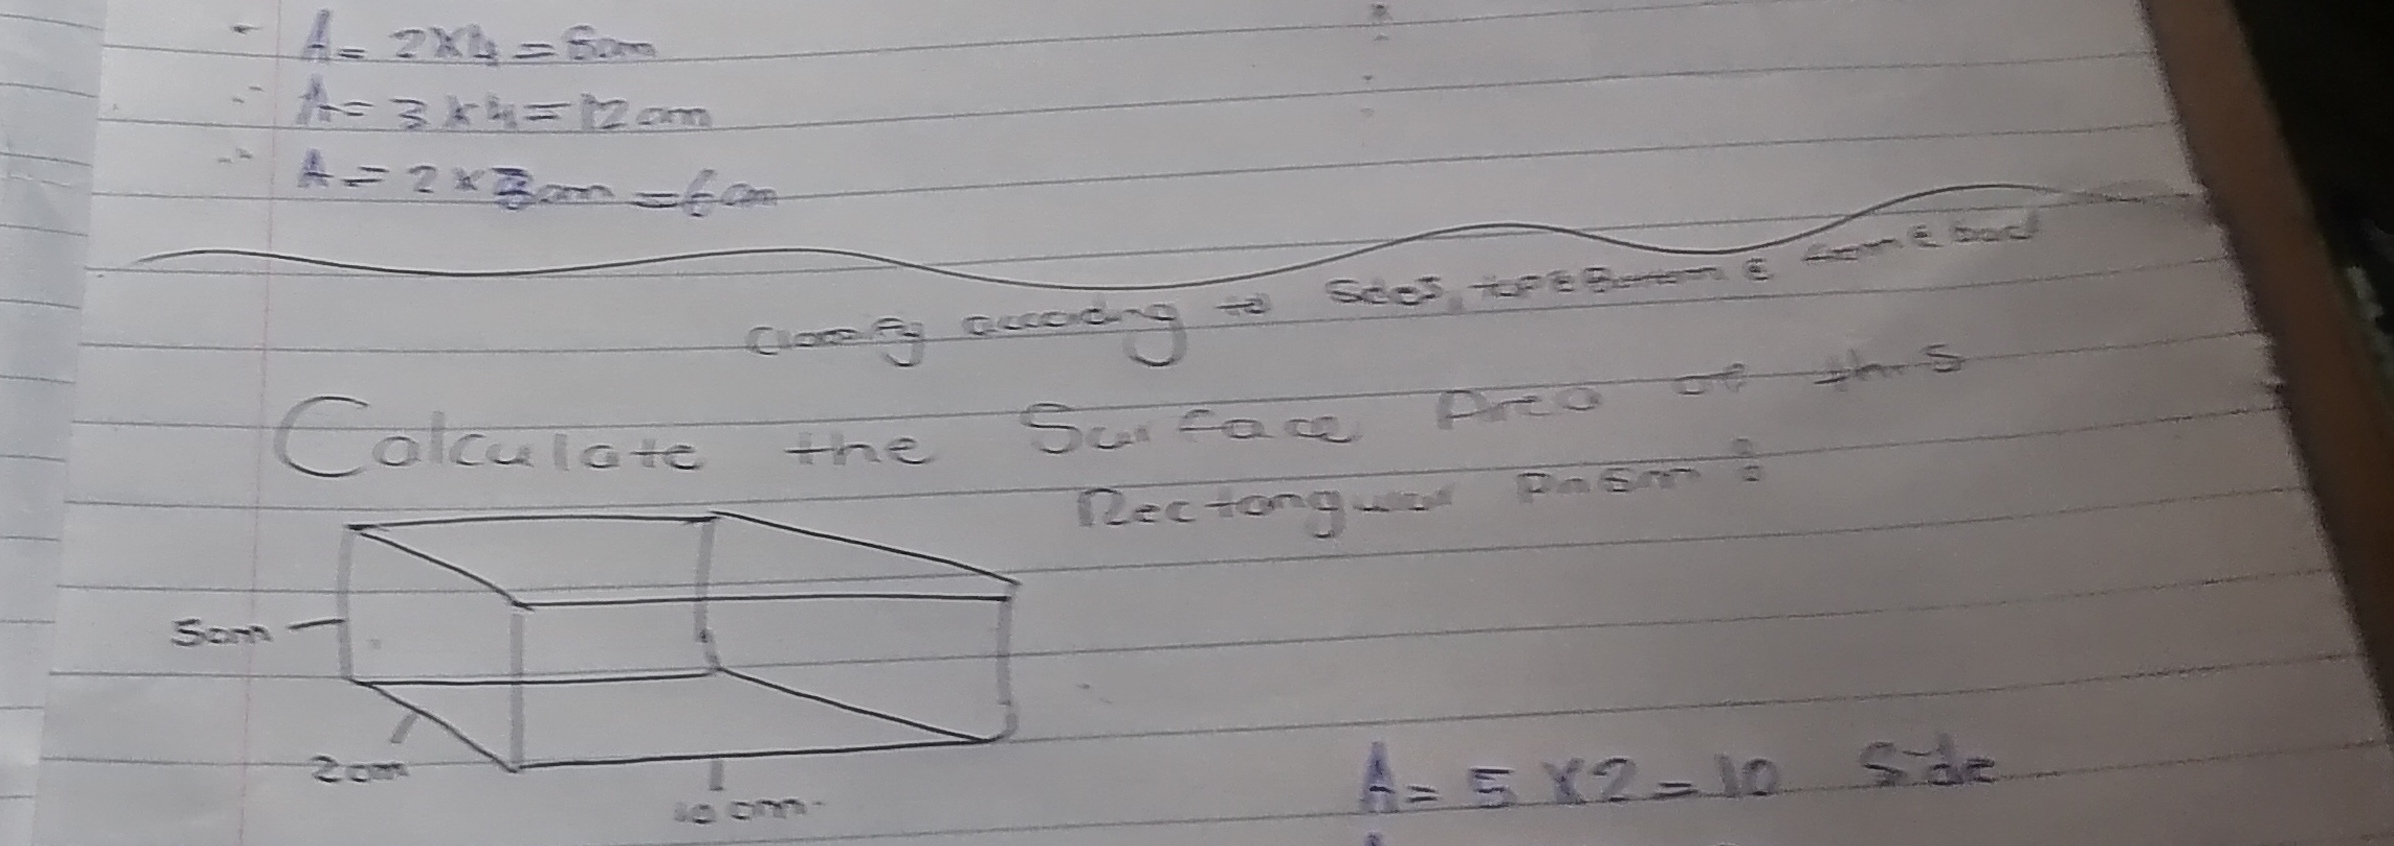 A = 2 x 4 = 8cm
A = 3 x 4 = 12cm
A = 2 x 3cm = 6cm
Classify according to Sides, top & Bottom & &
Calculate the Surface Area of this
Rectangular Prism :
5cm
2cm
10cm.
A = 5 x 2 = 10 Side